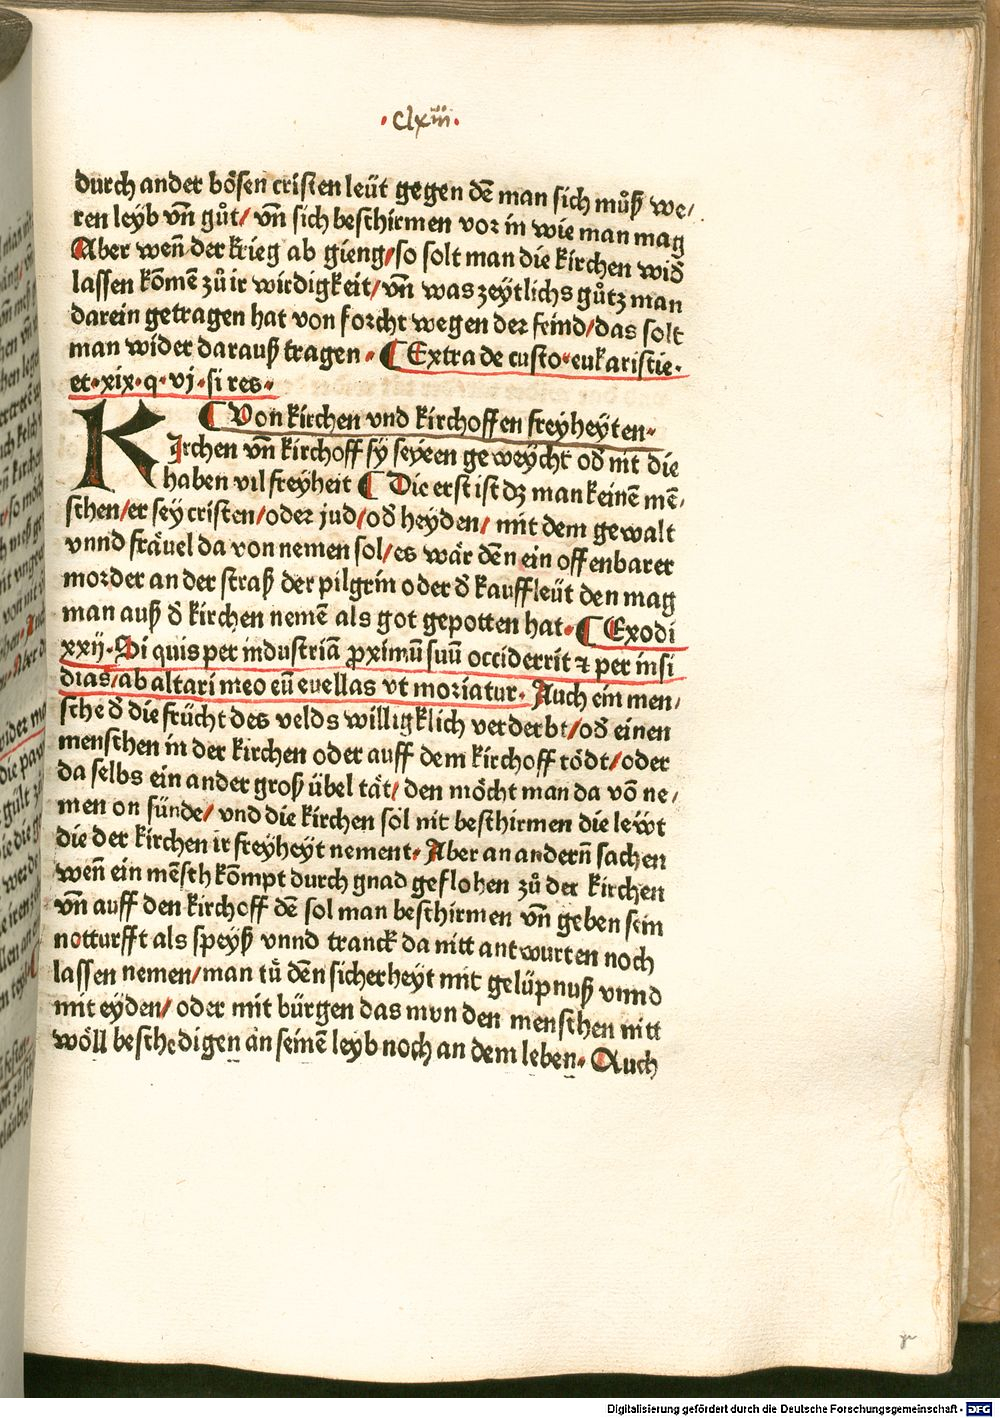 ·clxiii·
durch ander bo̎sen cristen leüt gegen dē man sich můß we/
ren leyb vn̄ gůt/ vn̄ sich beschirmen vor in wie man mag
Aber wen̄ der krieg ab gieng/so solt man die kirchen wid̕
lassen kōmē zů ir wirdigkeit/vn̄ was zeÿtlichs gůtz man
darein getragen hat von forcht wegen der feind/das solt
man wider darauß tragen· ¶ Extra de custo·eukaristie·
et·xix·q·vj·si res·
¶ Von kirchen vnd kirchoffen freyheyten·
KIrchen vn̄ kirchoff sÿ seyen geweycht od̕ nit die
haben vil freyheit ¶ Die erst ist dz man keinē mē/
schen/er seÿ cristen/oder jud/od̕ heyden/ mit dem gewalt
vnnd fräuel da von nemen sol/es wär dēn ein offenbarer
morder an der straß der pilgrin oder d̕ kauffleüt den mag
man auß d̕ kirchen nemē als got gepotten hat· ¶ Exodi
xxij·Si quis per industriā ꝓximū suū occiderrit ⁊ per insi
dias/ab altari meo eū euellas vt moriatur· Auch ein men/
sche d̕ die frücht des velds willigklich verderbt/od̕ einen
menschen in der kirchen oder auff dem kirchoff tödt/oder
da selbs ein ander groß übel tät/ den möcht man da vō ne/
men on sünde/ vnd die kirchen sol nit beschirmen die lewt
die der kirchen ir freyheyt nement· Aber an andern̄ sachen
wen̄ ein mēsch kōmpt durch gnad geflohen zů der kirchen
vn̄ auff den kirchoff dē sol man beschirmen vn̄ geben sein
notturfft als speyß vnnd tranck da nitt antwurten noch
lassen nemen/man tů dēn sicherheyt mit gelüpnuß vnnd
mit eyden/ oder mit bürgen das mvn den menschen nitt
wöll beschedigen an seinē leyb noch an dem leben· Auch
Digitalisierung gefördert durch die Deutsche Forschungsgemeinschaft - DFG